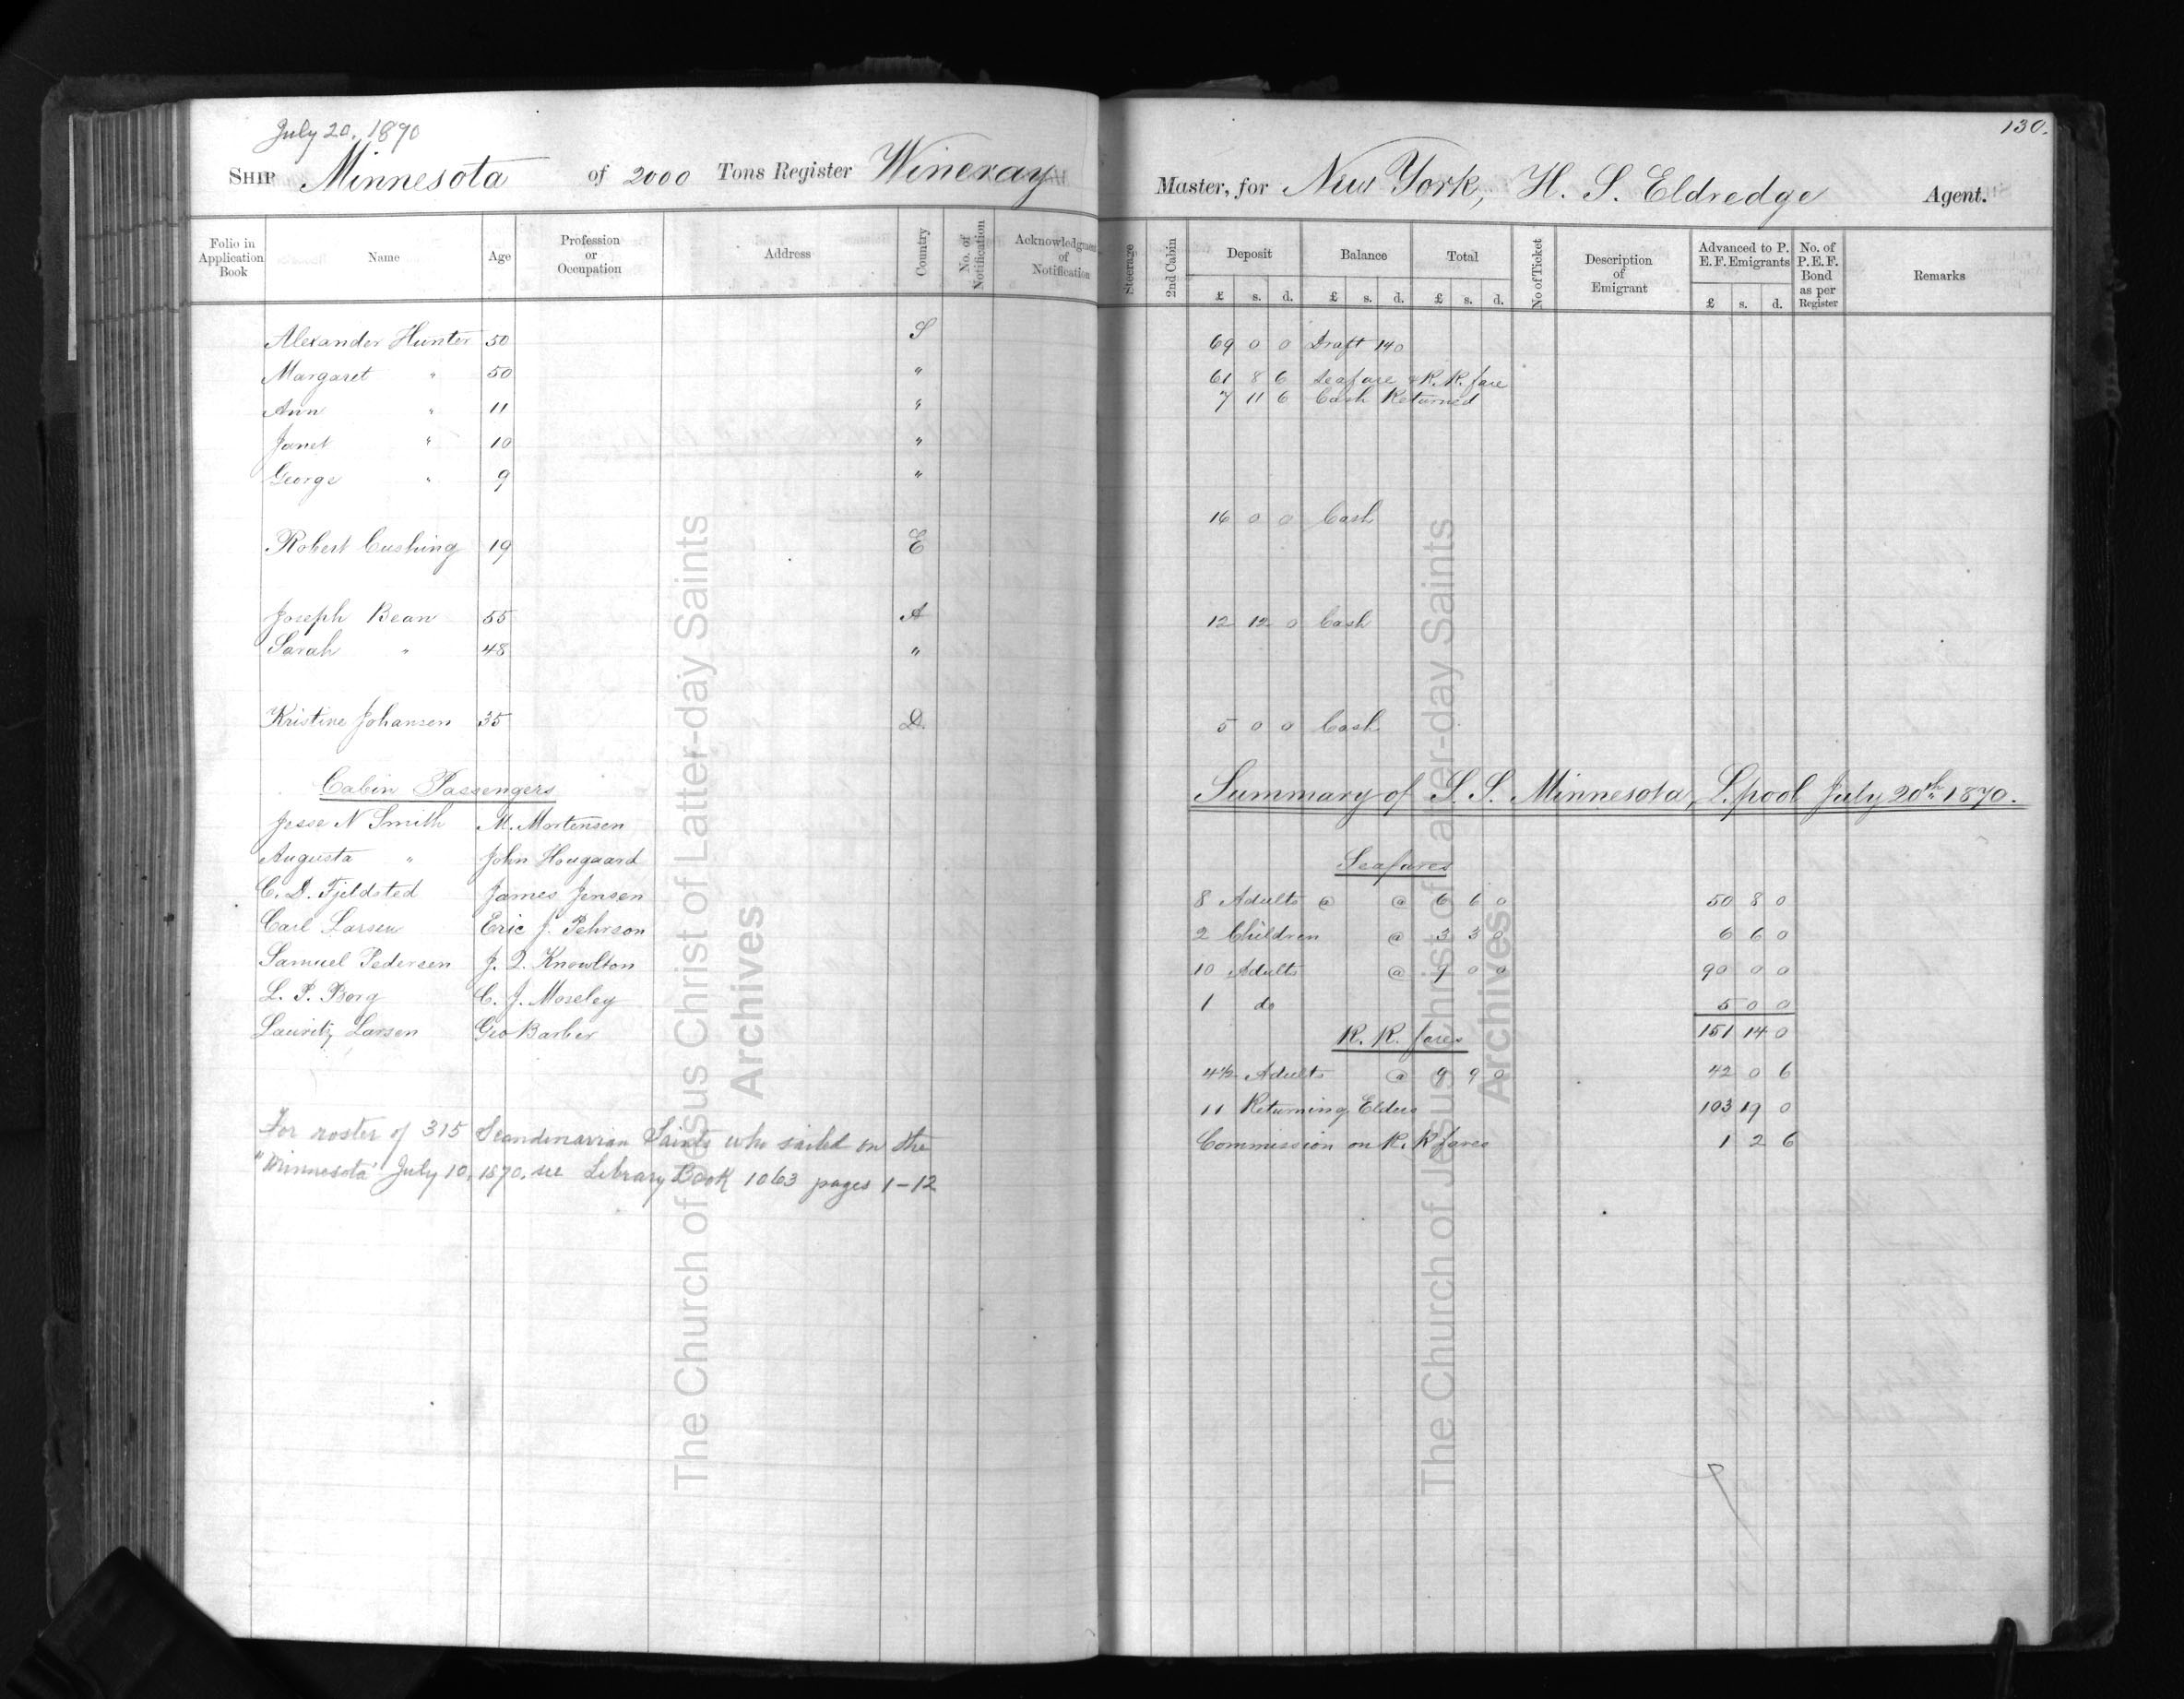 July 20, 1870
130.
SHIP Minnesota of 2000 Tons Register Wineray Master, for New York, H. S. Eldredge Agent.
Folio in Application Book Name Age Profession or Occupation Address Country No. of Notification Acknowledgment of Notification Steerage 2nd Cabin Deposit Balance Total No of Ticket Description of Emigrant Advanced to P. E. F. Emigrants No. of P. E. F. Bond as per Register Remarks
£ s. d. £ s. d. £ s. d. £ s. d.
Alexander Hunter 50 S 69 0 0 Draft 140
Margaret " 50 " 61 8 6 Seafare & R. R. fare
Ann " 11 " 7 11 6 Cash Returned
Janet " 10 "
George " 9 "
16 0 0 Cash
Robert Cushing 19 E
Joseph Bean 55 A 12 12 0 Cash
Sarah " 48 "
Kristine Johansen 35 D. 5 0 0 Cash
Cabin Passengers
Jesse N Smith M. Mortensen
Augusta " John Hougaard
C. D. Fjeldsted James Jensen
Carl Larsen Eric J. Pehrson
Samuel Pedersen J. Q. Knowlton
L. P. Borg C. J. Moseley
Lauritz Larsen Geo Barber
For roster of 315 Scandinavian Saints who sailed on the
"Minnesota" July 10, 1870, see Library Book 1063 pages 1-12
Summary of S. S. Minnesota, L.pool July 20th 1870.
Seafares
8 Adults @ @ 6 6 0 50 8 0
2 Children @ 3 3 0 6 6 0
10 Adults @ 9 0 0 90 0 0
1 do 5 0 0
R. R. fares 151 14 0
4½ Adults @ 9 9 0 42 0 6
11 Returning Elders 103 19 0
Commission on R. R fares 1 2 6
The Church of Jesus Christ of Latter-day Saints
Archives
The Church of Jesus Christ of Latter-day Saints
Archives